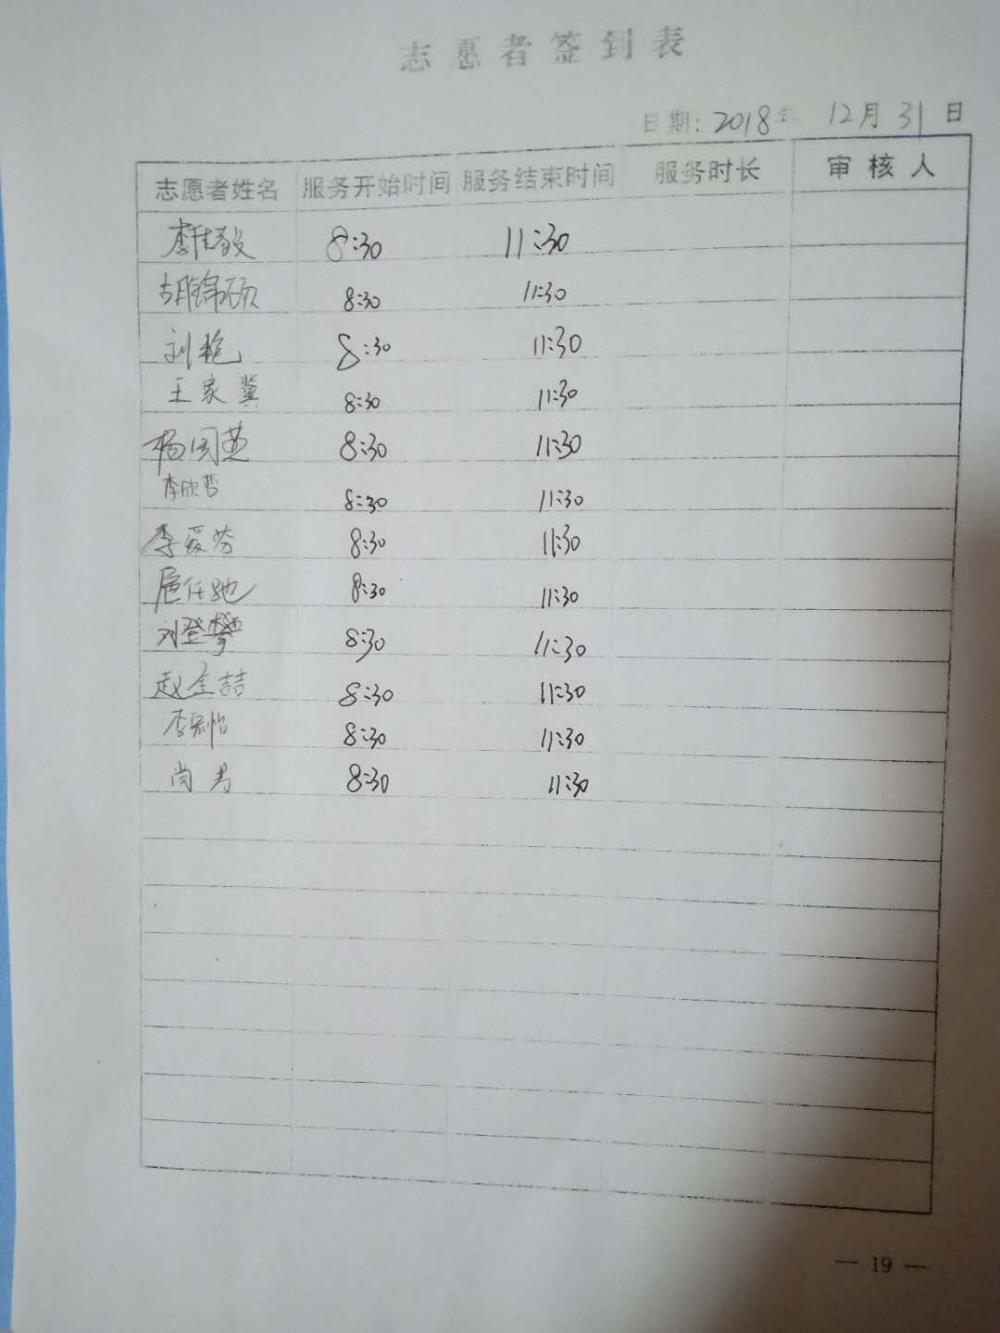 志愿者签到表
日期: 2018年 12月 31日
志愿者姓名 服务开始时间 服务结束时间 服务时长 审核人
李佳毅 8:30 11:30
胡锦硕 8:30 11:30
刘艳 8:30 11:30
王家冀 8:30 11:30
杨国燕 8:30 11:30
李欣哲 8:30 11:30
李爱芳 8:30 11:30
8:30 11:30
刘登攀 8:30 11:30
赵全喆 8:30 11:30
李 怡 8:30 11:30
尚 8:30 11:30
— 19 —